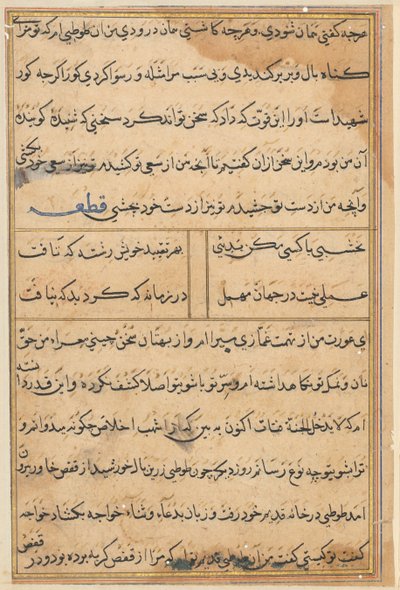 هرچه کفتی همان شنودی و هرچه کاشتی همان درودی من ان طوطیم که تو مرا
کناه بال و پر برکندیدی و بی سبب مرا مثله و رسوا کردی کور اکرچه کور
شهید است او را این قوت که داد که سخن تواند کرد سخنی که شنیده کوینده
آن من بودم و این سخن ازان کفتیم تا آنچه من از سعی تو کشیدم تو نیز از سعی خود بکشی
و آنچه من از دست تو چشیدم تو نیز از دست خود بچشی قطعه
نخشبی با کسی مکن بدیی
بهر تقیید خویش رشته که تافت
عملی نیست در جهان مهمل
در زمانه که کرد بد که نیافت
ای عورت من از تهمت غمازی مبرا ام و از بهتان سخن چینی معرا من حق
نان و نمک تو نکاه داشته ام و سر تو با شوی تو اصلا کشف نکرده و این قدر دانسته
ام که لا یدخل الجنة قتات اکنون به بین که اخلاص چکونه میدوانم و
ترا بشوی تو چه نوع رسانم روز دیکر چون طوطی زرین بال خورشید از قفص خاور برون
امد طوطی در خانه قدیم خود رفت و زبان بدعا و ثناء خواجه بکشاد خواجه
کفت تو کیستی کفت من آن طوطی قدیم توام که مرا از قفص کربه برده بود و در قفص